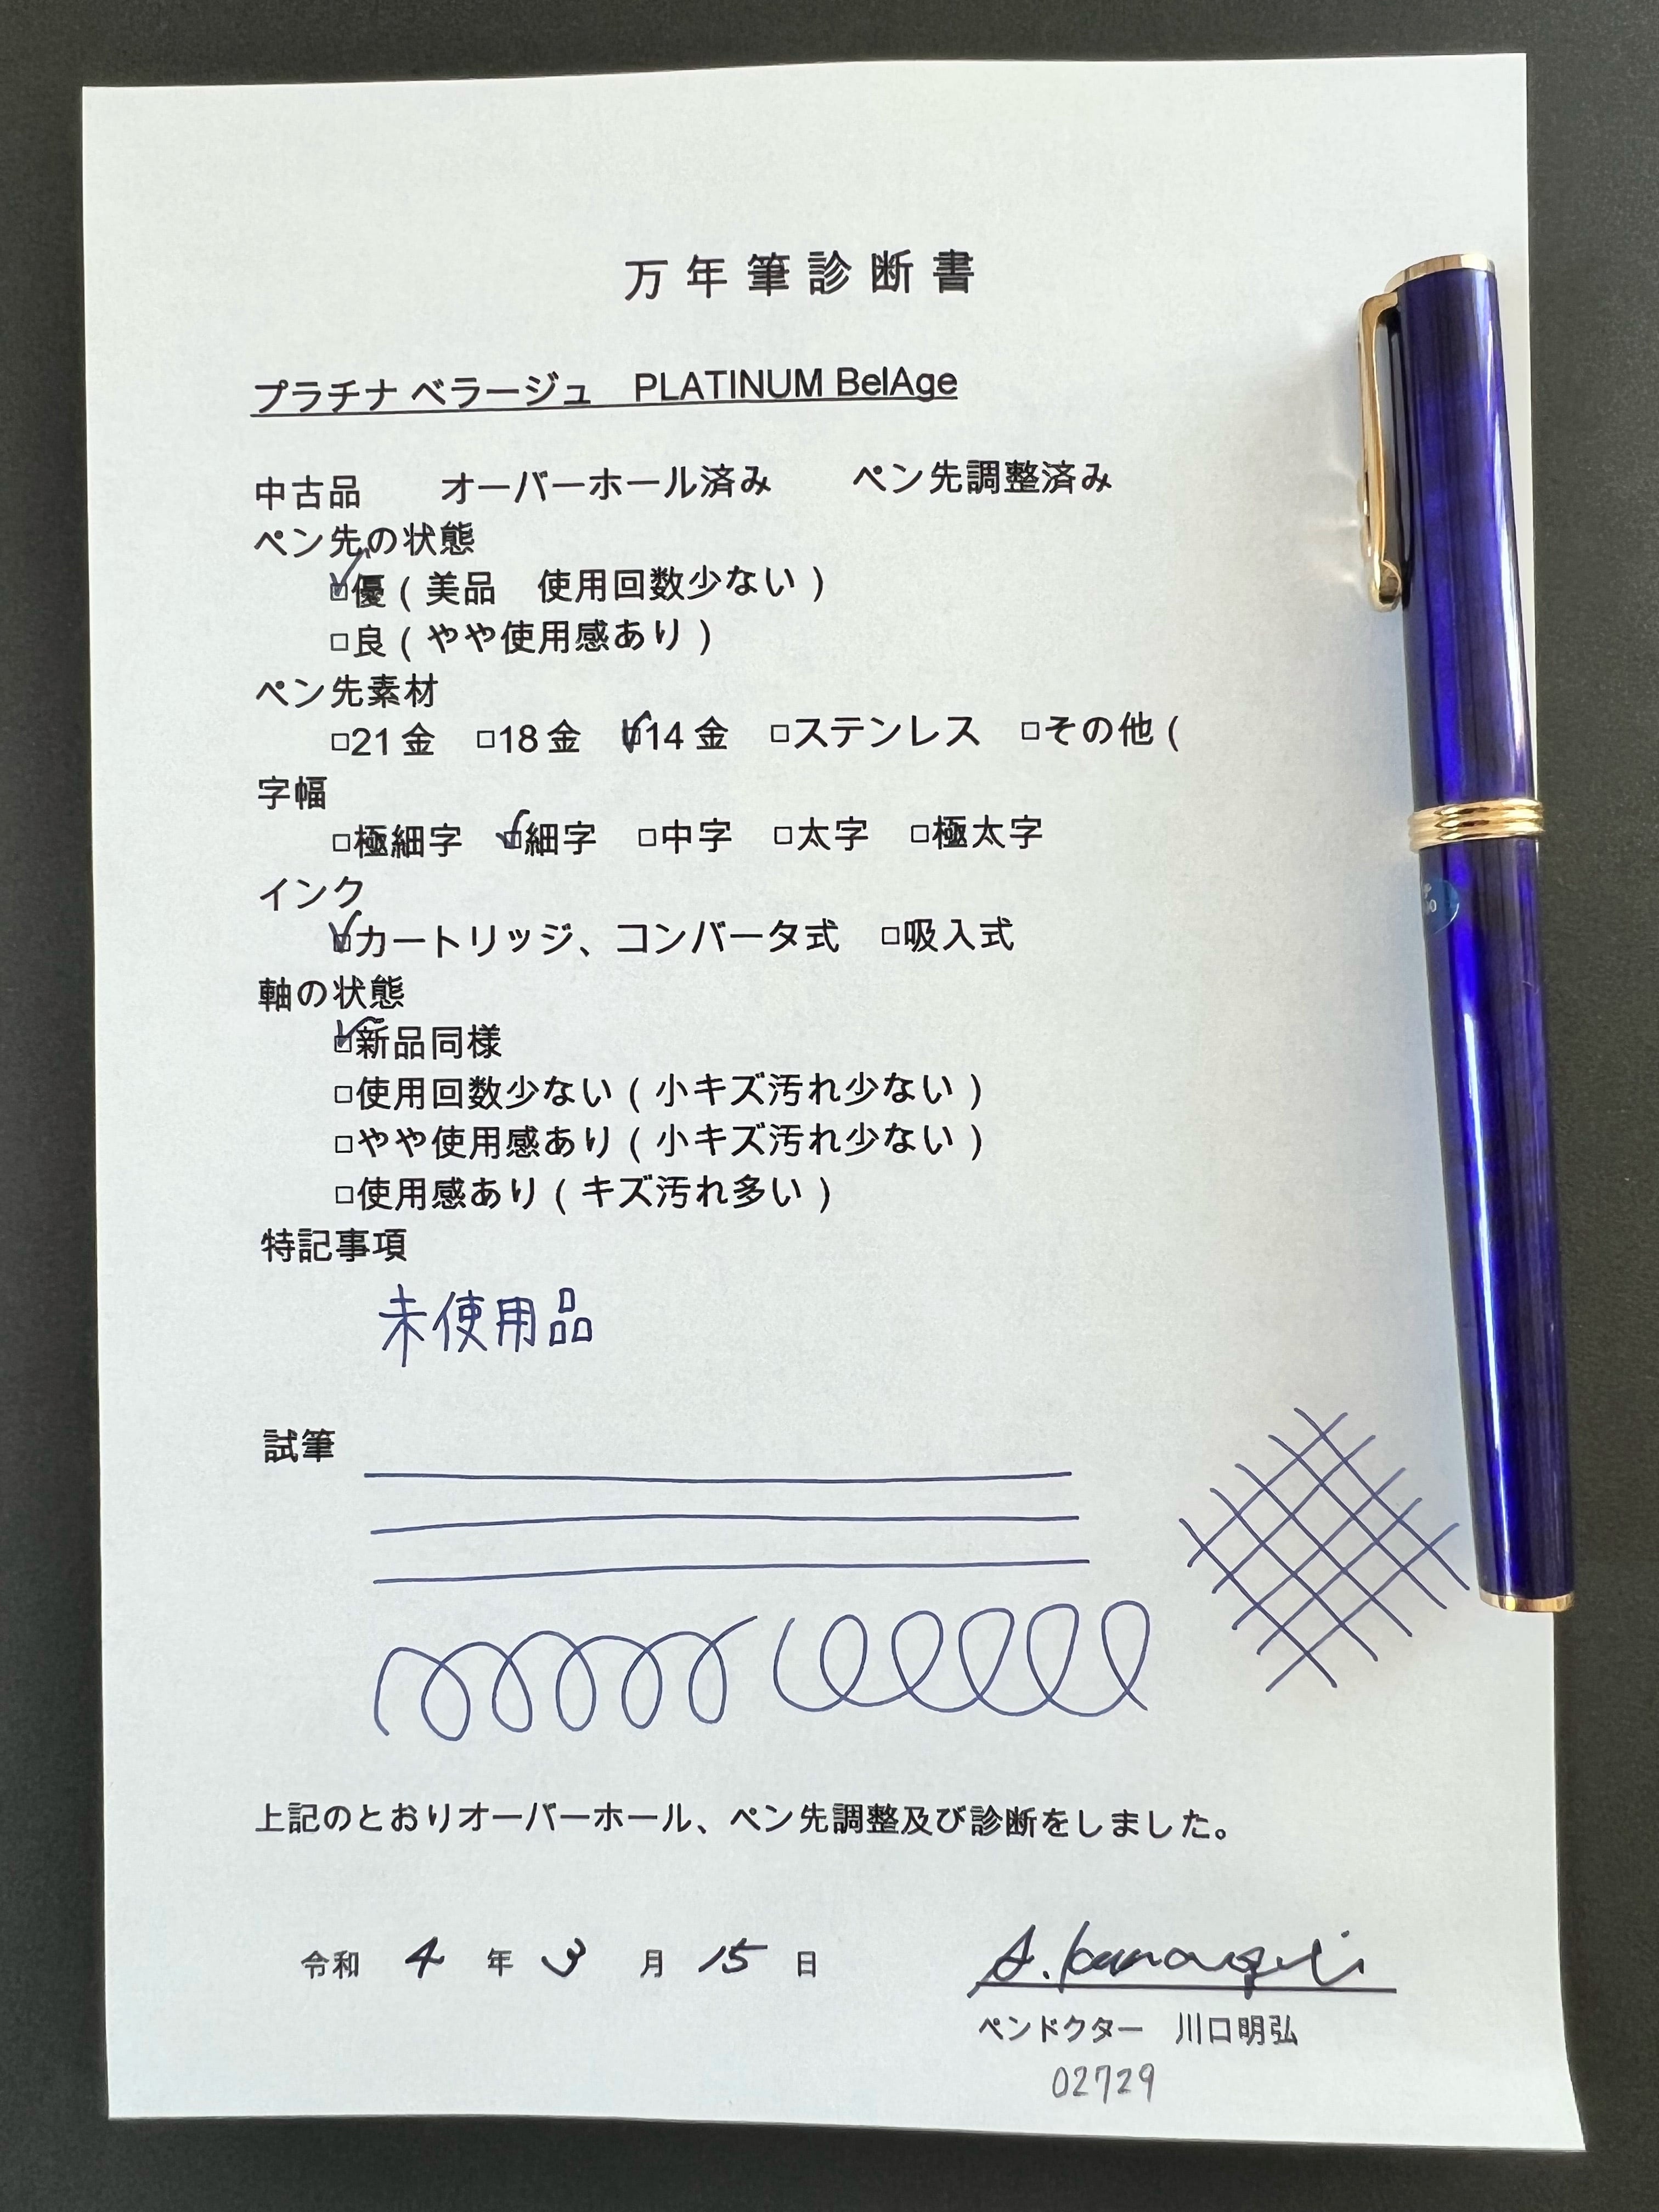 万年筆診断書
プラチナ ベラージュ　PLATINUM BelAge
中古品　オーバーホール済み　ペン先調整済み
ペン先の状態
☑優（美品　使用回数少ない）
□良（やや使用感あり）
ペン先素材
□21金　□18金　☑14金　□ステンレス　□その他（
字幅
□極細字　☑細字　□中字　□太字　□極太字
インク
☑カートリッジ、コンバータ式　□吸入式
軸の状態
☑新品同様
□使用回数少ない（小キズ汚れ少ない）
□やや使用感あり（小キズ汚れ少ない）
□使用感あり（キズ汚れ多い）
特記事項
未使用品
試筆
上記のとおりオーバーホール、ペン先調整及び診断をしました。
令和 4 年 3 月 15 日
ペンドクター　川口明弘
02729